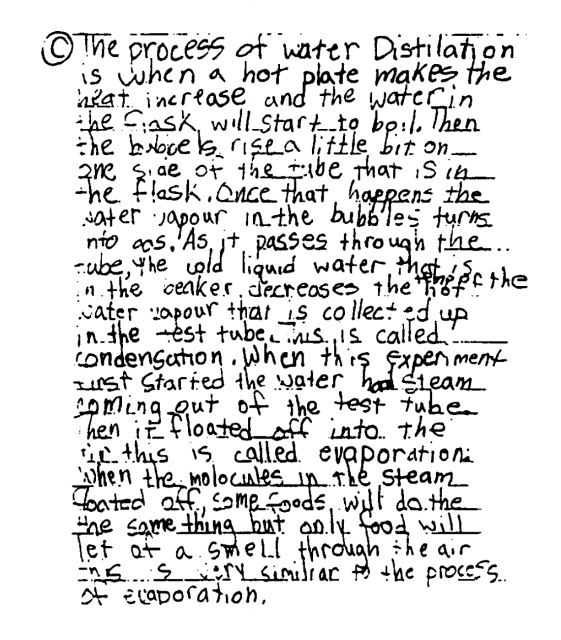 © The process of water Distilation
is when a hot plate makes the
heat increase and the water in
the flask will start to boil. Then
the bubbels rise a little bit on
one side of the tube that is in
the flask. Once that happens the
water vapour in the bubbles turns
into gas. As it passes through the
tube, the cold liquid water that is
in the beaker decreases the hot the
water vapour that is collected up
in the test tube. This is called
condensation. When this experiment
first started the water had steam
coming out of the test tube
then it floated off into the
air this is called evaporation.
When the molocules in the steam
floated off, some foods will do the
the same thing but only food will
let of a smell through the air
this is very similiar to the process
of evaporation.